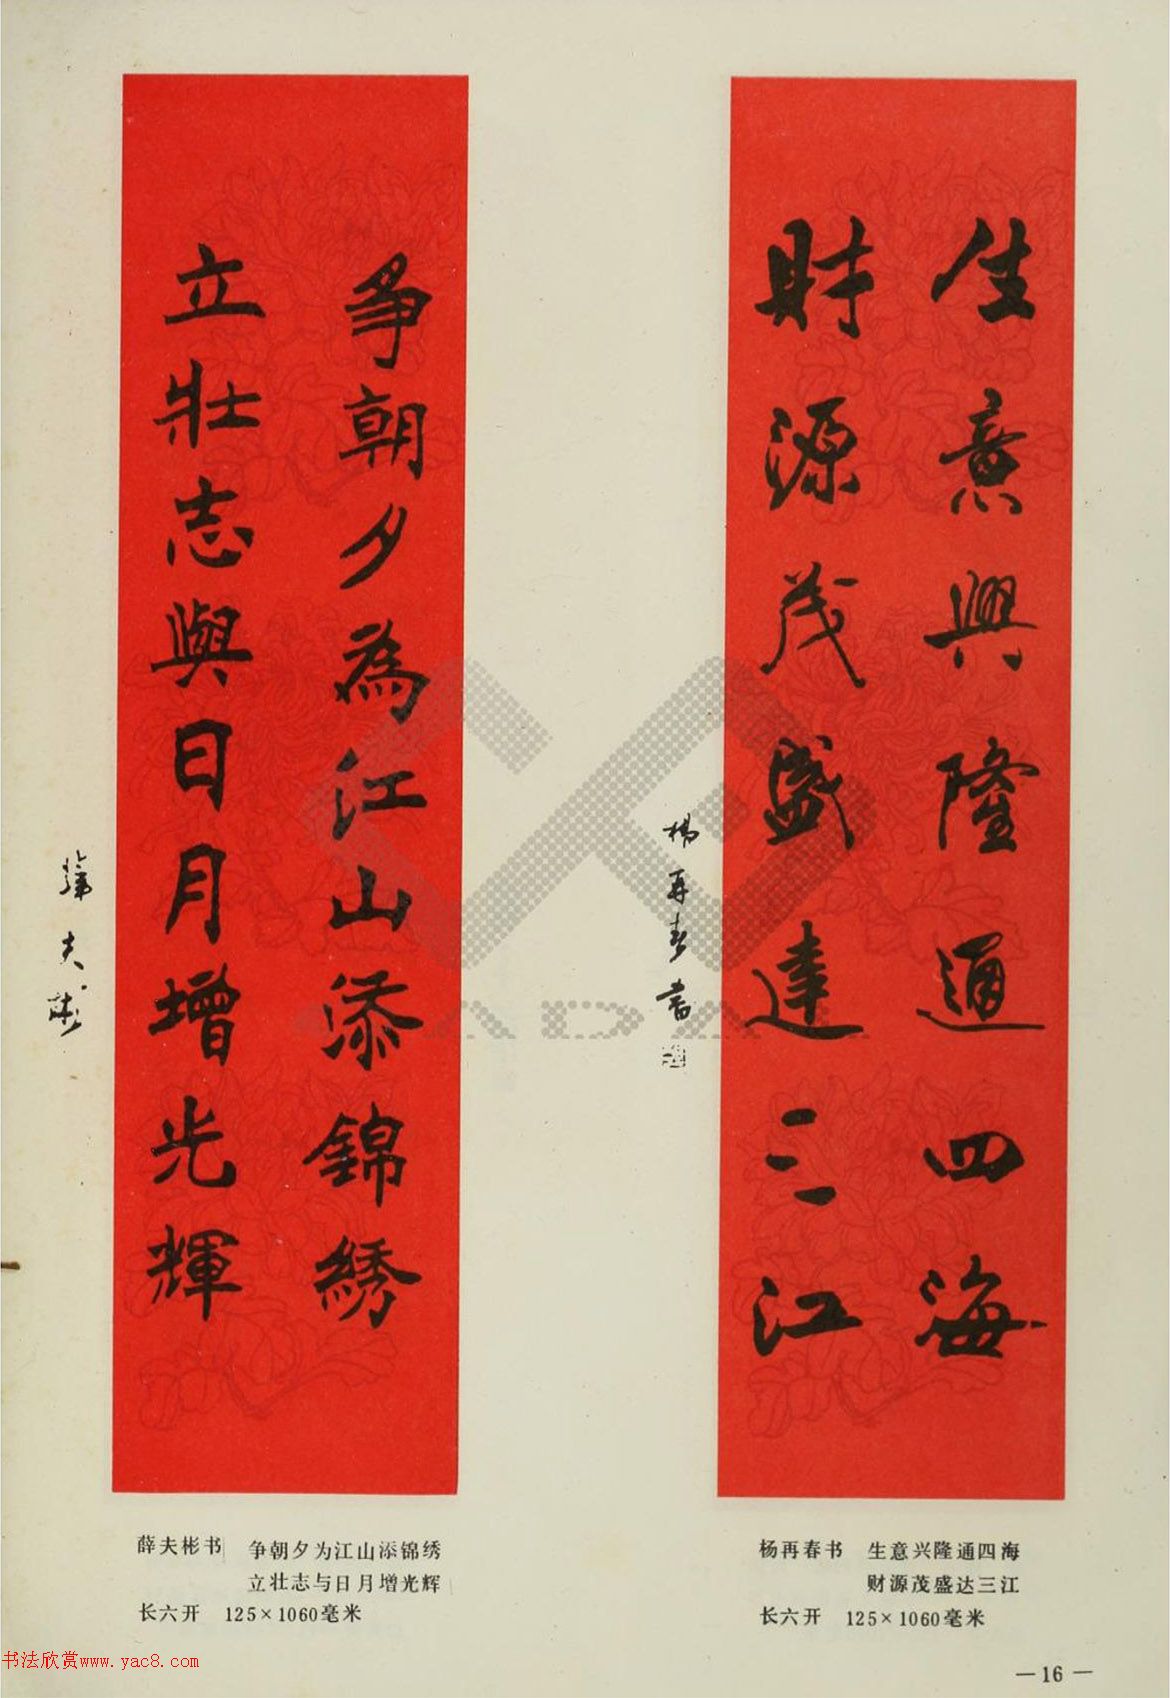 生意興隆通四海
財源茂盛達三江
楊再春書
爭朝夕為江山添錦綉
立壯志與日月增光輝
薛夫彬
薛夫彬书 争朝夕为江山添锦绣
立壮志与日月增光辉
长六开 125×1060毫米
杨再春书 生意兴隆通四海
财源茂盛达三江
长六开 125×1060毫米
书法欣赏www.yac8.com
—16—